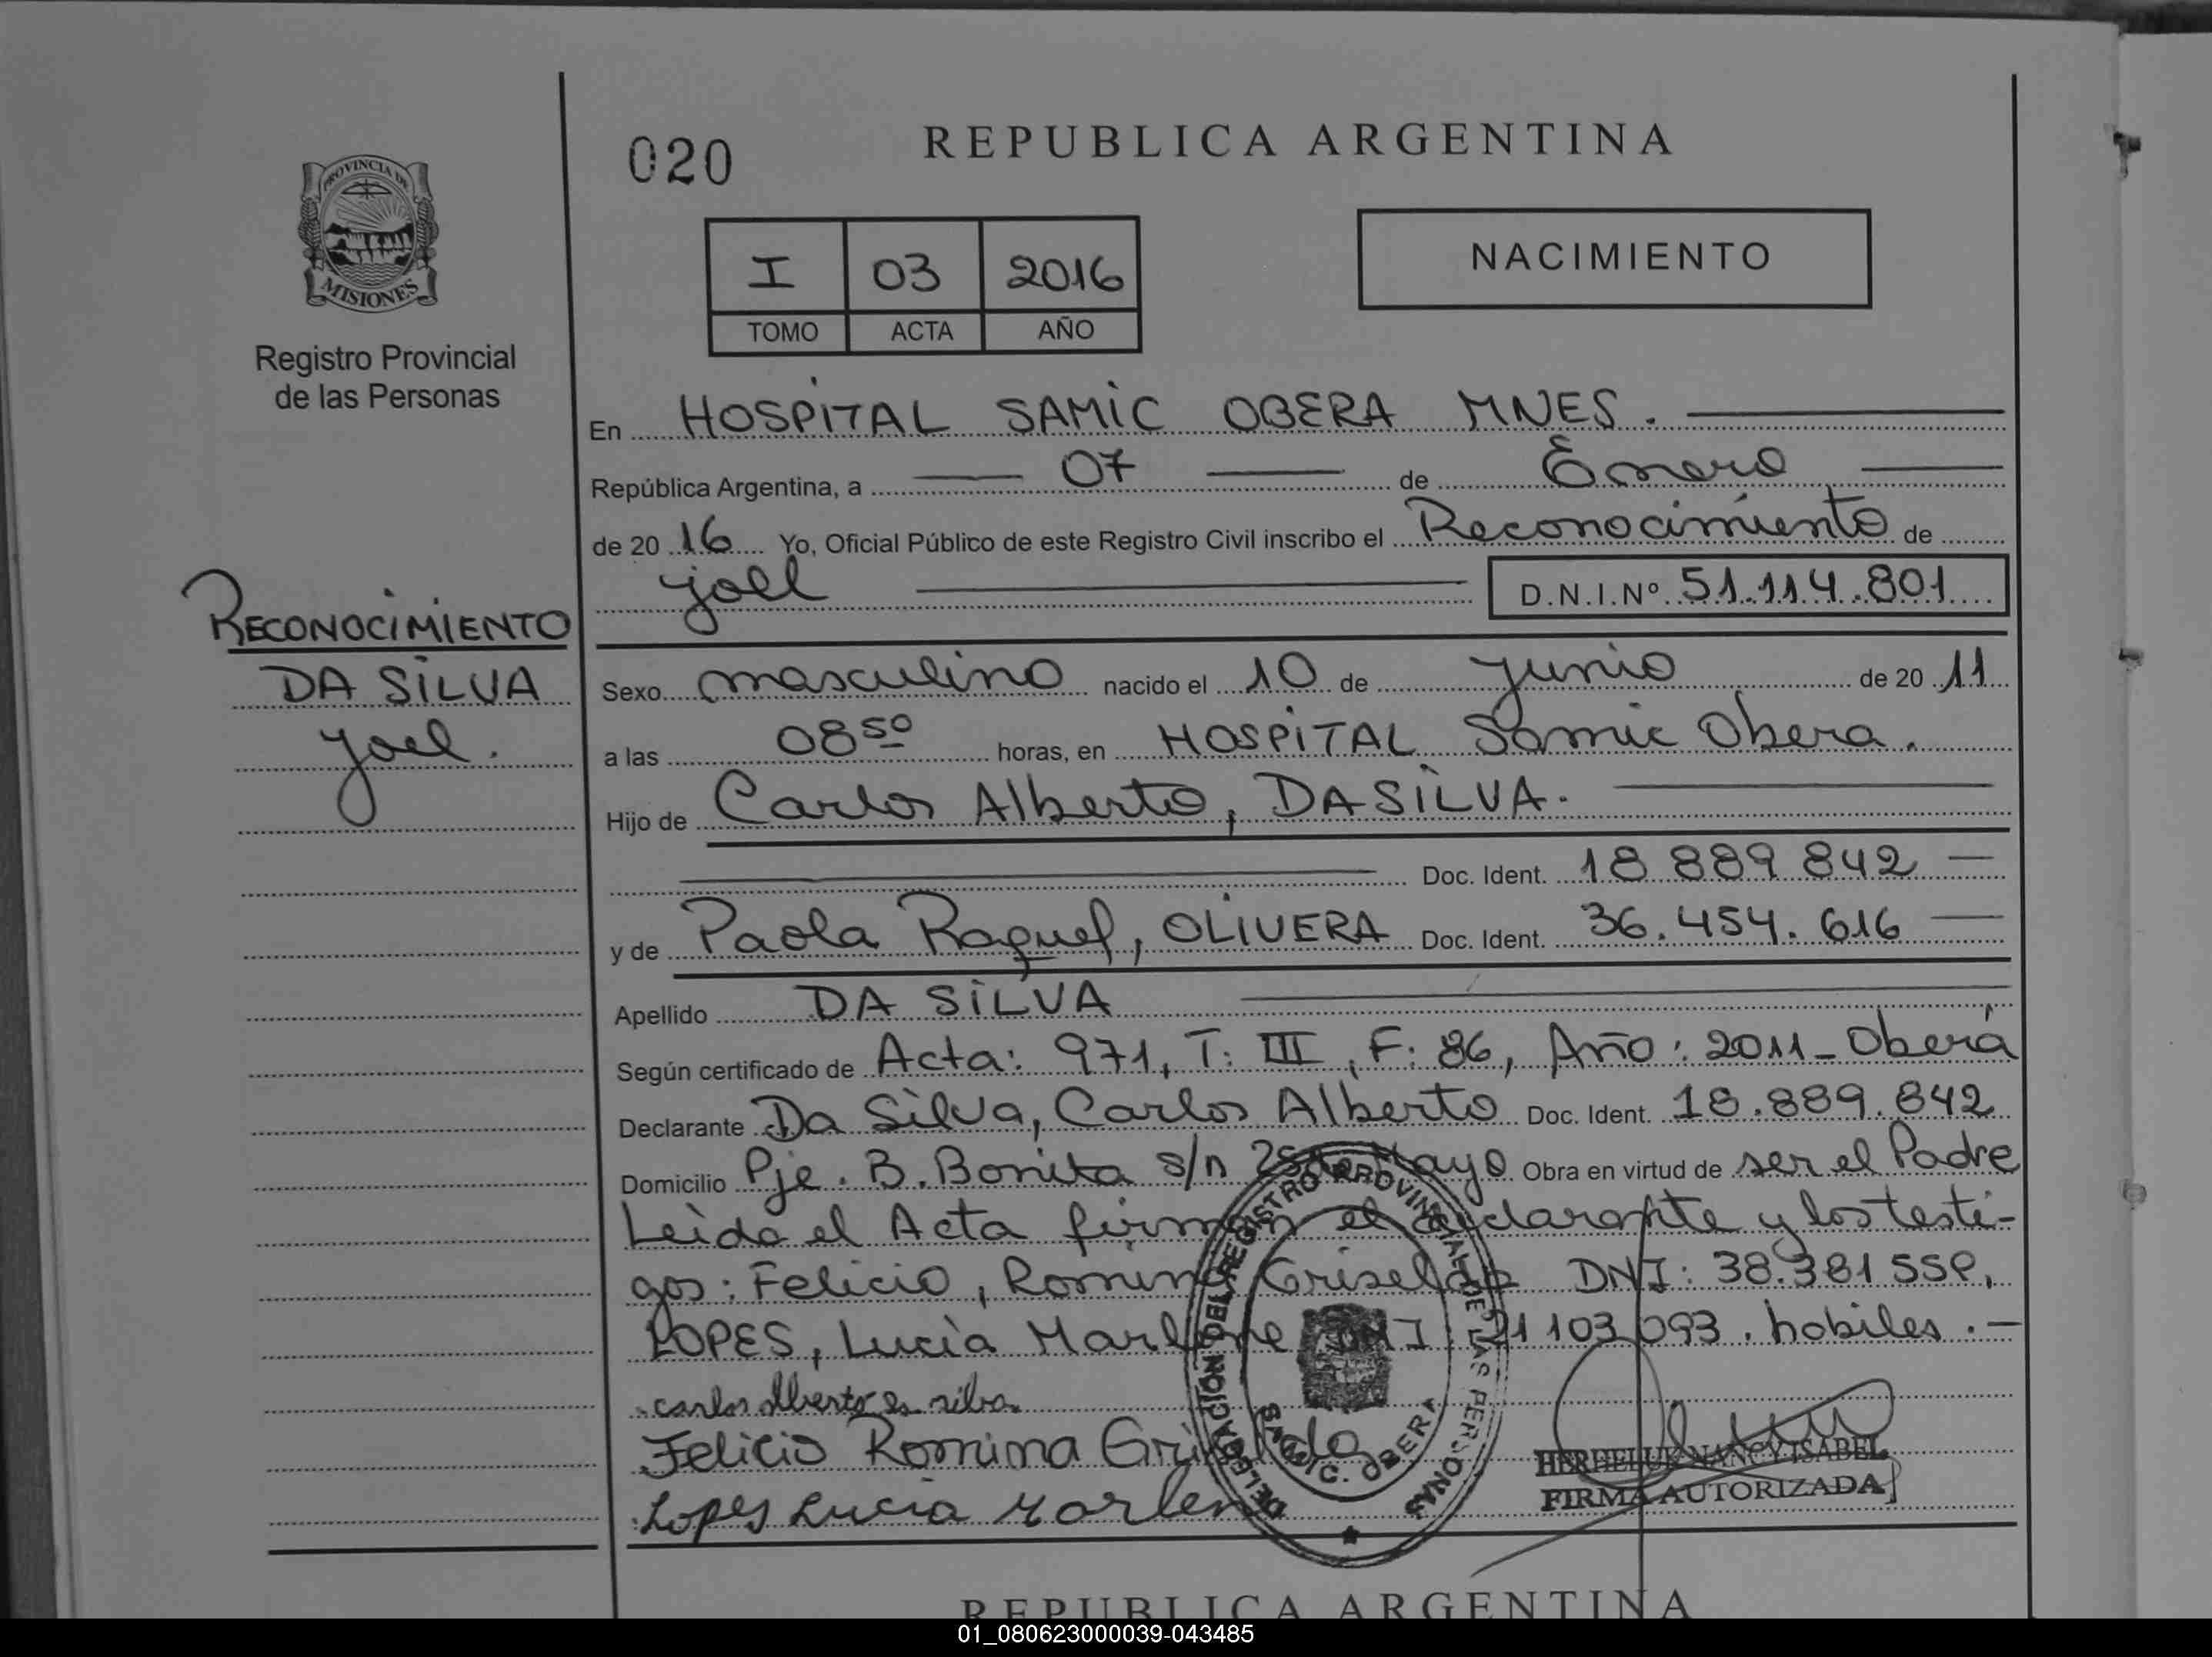 020
REPUBLICA ARGENTINA
PROVINCIA DE
MISIONES
Registro Provincial
de las Personas
I 03 2016
TOMO ACTA AÑO
NACIMIENTO
En HOSPITAL SAMIC OBERA MNES.
República Argentina, a 07 de Enero
de 20 16 Yo, Oficial Público de este Registro Civil inscribo el Reconocimiento de
Joel D.N.I.Nº 51.114.801
RECONOCIMIENTO
DA SILVA
Joel.
Sexo masculino nacido el 10 de Junio de 20 11
a las 08 50 horas, en HOSPITAL Samic Obera.
Hijo de Carlos Alberto, DA SILVA.
Doc. Ident. 18 889 842
y de Paola Raquel, OLIVERA Doc. Ident. 36.454.616
Apellido DA SILVA
Según certificado de Acta: 971, T: III, F: 86, Año: 2011_Oberá
Declarante Da Silva, Carlos Alberto Doc. Ident. 18.889.842
Domicilio Pje. B. Bonita s/n 25 de Mayo Obra en virtud de ser el Padre
Leido el Acta firman el declarante y los testi-
gos: Felicio, Romina Griselda DNI: 38.381
LOPES, Lucia Marlene DNI 21 103 093. habiles.-
carlos Alberto silva
Felicio Romina Griselda
Lopes Lucia Marlen
DELEGACIÓN DEL REGISTRO PROVINCIAL DE LAS PERSONAS
SAMIC. OBERA
NANCY ISABEL
FIRMA AUTORIZADA
REPUBLICA ARGENTINA
01_080623000039-043485